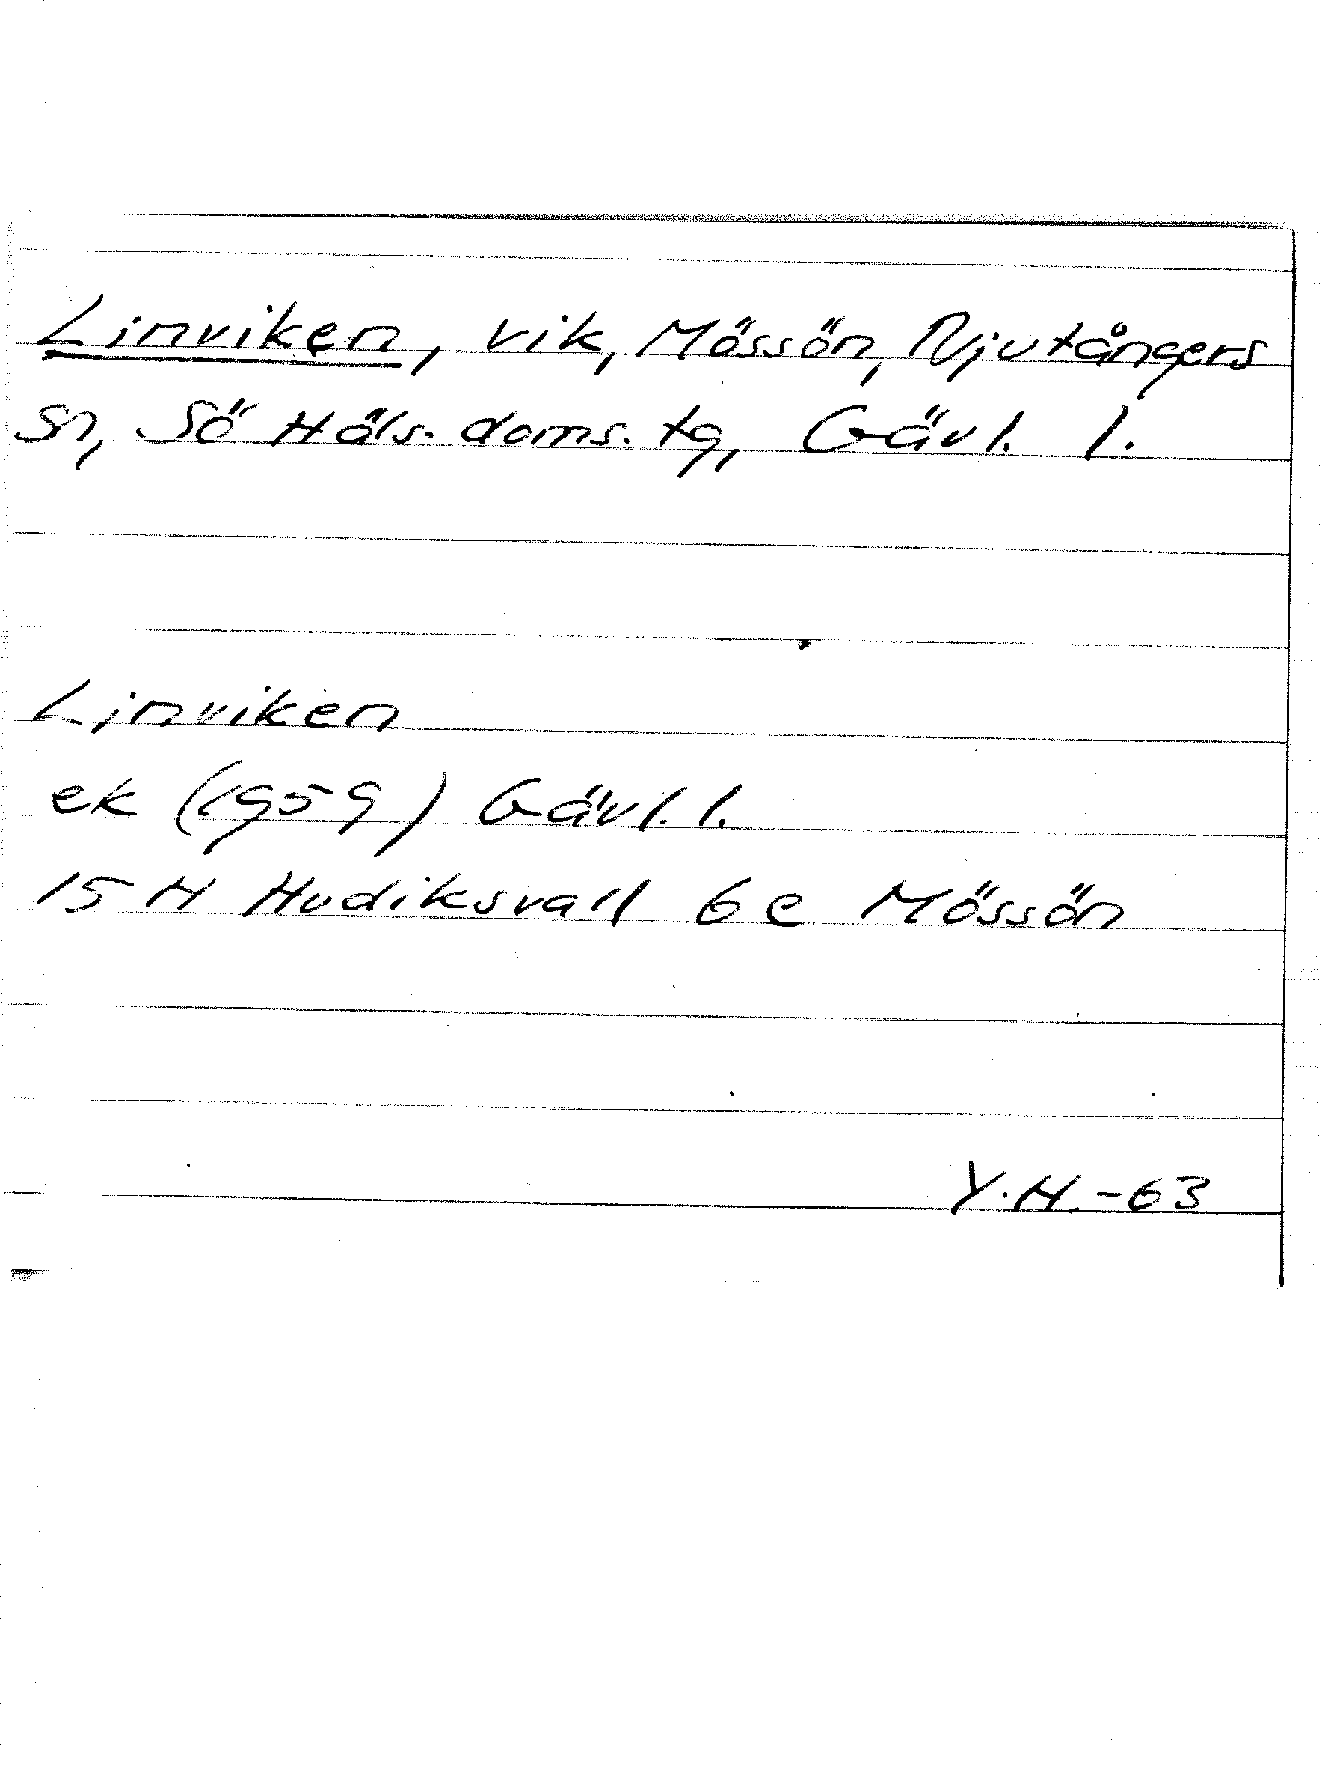 Linviken, vik, Mössön, Njutångers
sn, Sö Häls. doms. tg, Gävl. l.
Linviken
ek (1959) Gävl. l.
15 H Hudiksvall 6e Mössön
Y.H.-63